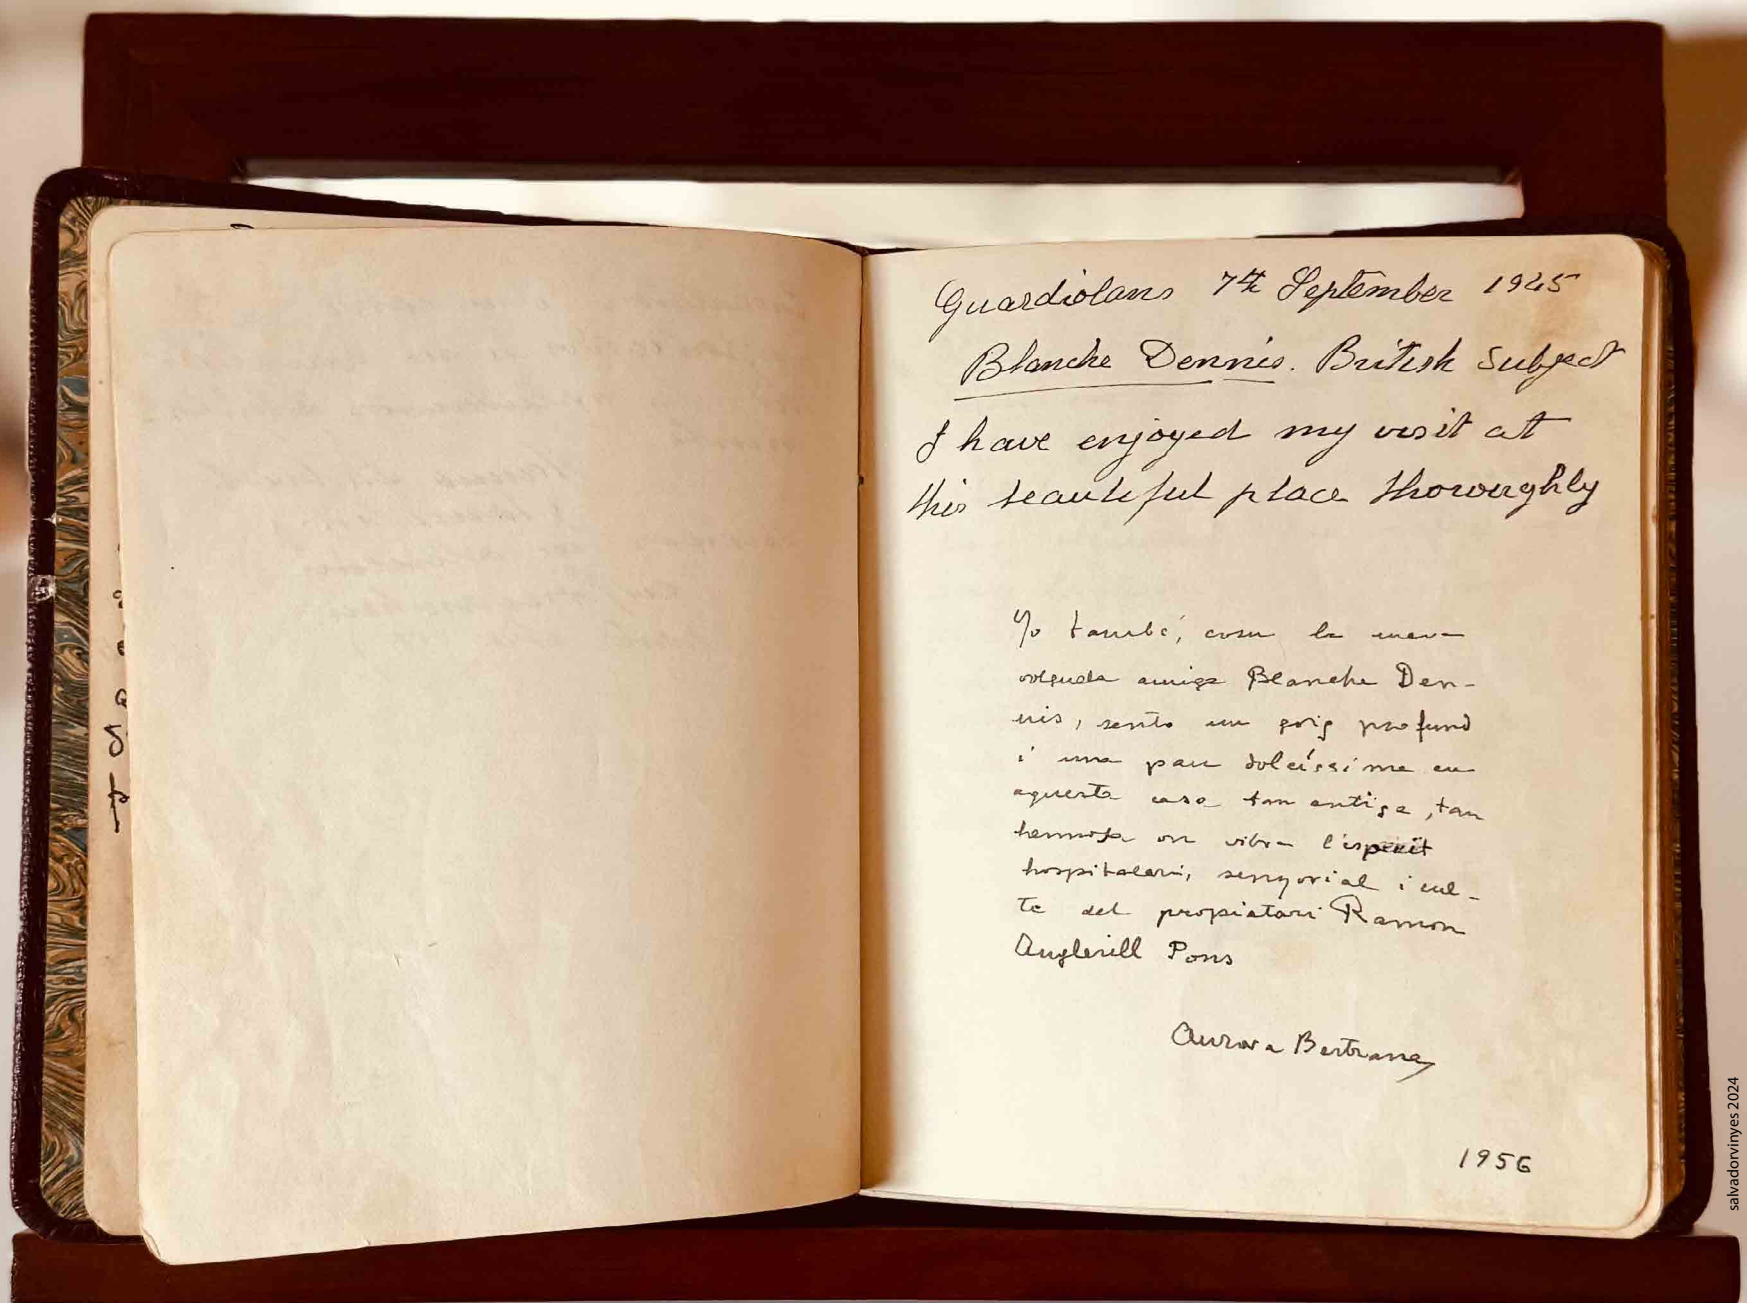 Guardiolans 7th September 1945
Blanche Dennis. British Subject
I have enjoyed my visit at
this beautiful place thoroughly
Yo també, com la meva
volguda amiga Blanche Den-
nis, sento un goig profund
i una pau dolcíssima en
aquesta casa tan antiga, tan
hermosa on vibra l'esperit
hospitalari, senyorial i cul-
te del propietari Ramon
Anglerill Pons
Aurora Bertrana
1956
salvadorvinyes 2024